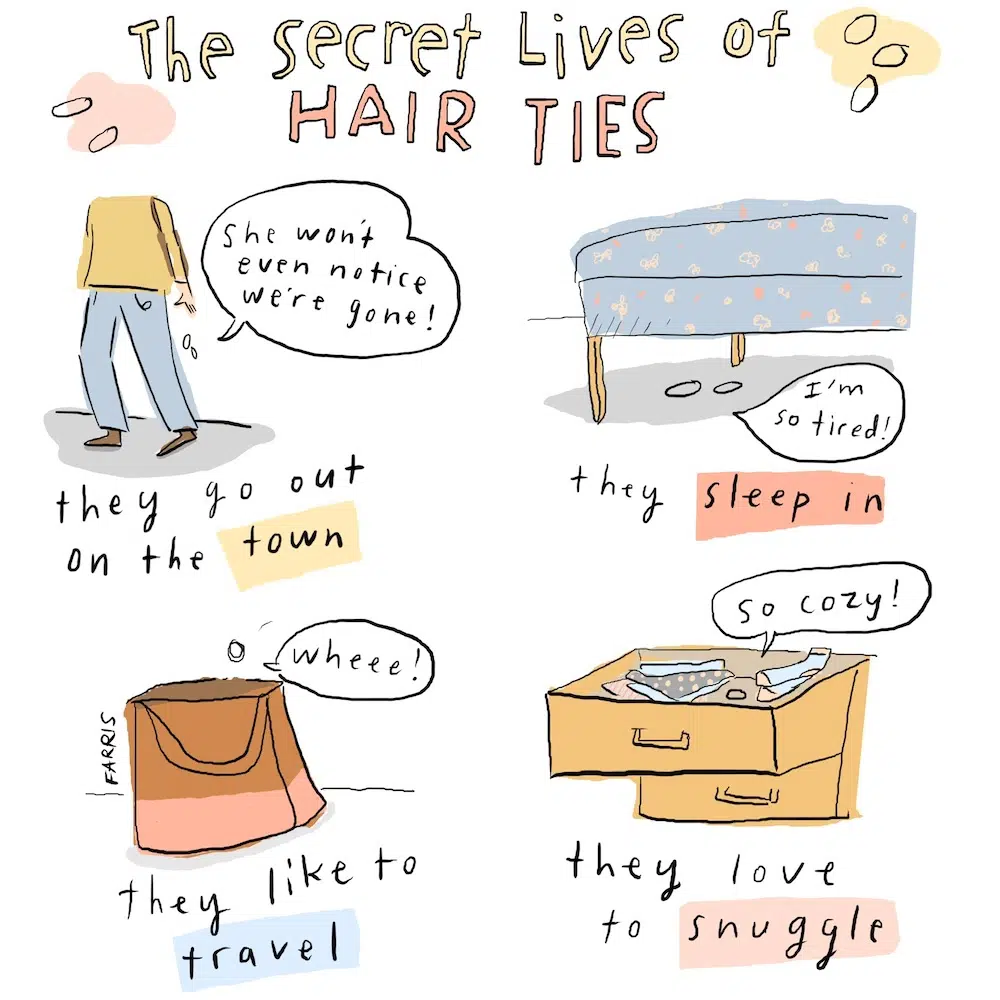 The Secret Lives of
HAIR TIES
She won't
even notice
we're gone!
they go out
on the town
I'm
so tired!
they sleep in
wheee!
FARRIS
they like to
travel
so cozy!
they love
to snuggle